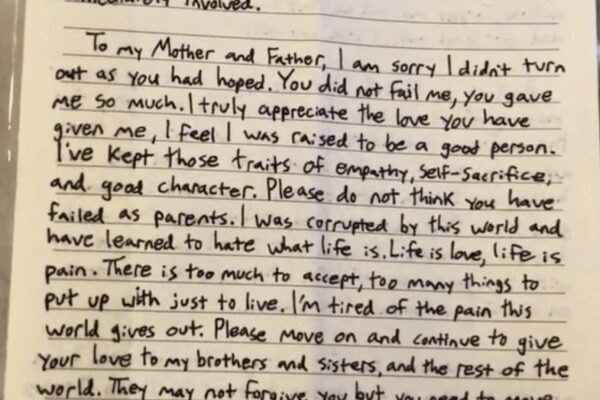 involved.
To my Mother and Father, I am sorry I didn't turn
out as you had hoped. You did not fail me, you gave
me so much. I truly appreciate the love you have
given me, I feel I was raised to be a good person.
I've kept those traits of empathy, self-sacrifice,
and good character. Please do not think you have
failed as parents. I was corrupted by this world and
have learned to hate what life is. Life is love, life is
pain. There is too much to accept, too many things to
put up with just to live. I'm tired of the pain this
world gives out. Please move on and continue to give
your love to my brothers and sisters, and the rest of the
world. They may not forgive you but you need to move